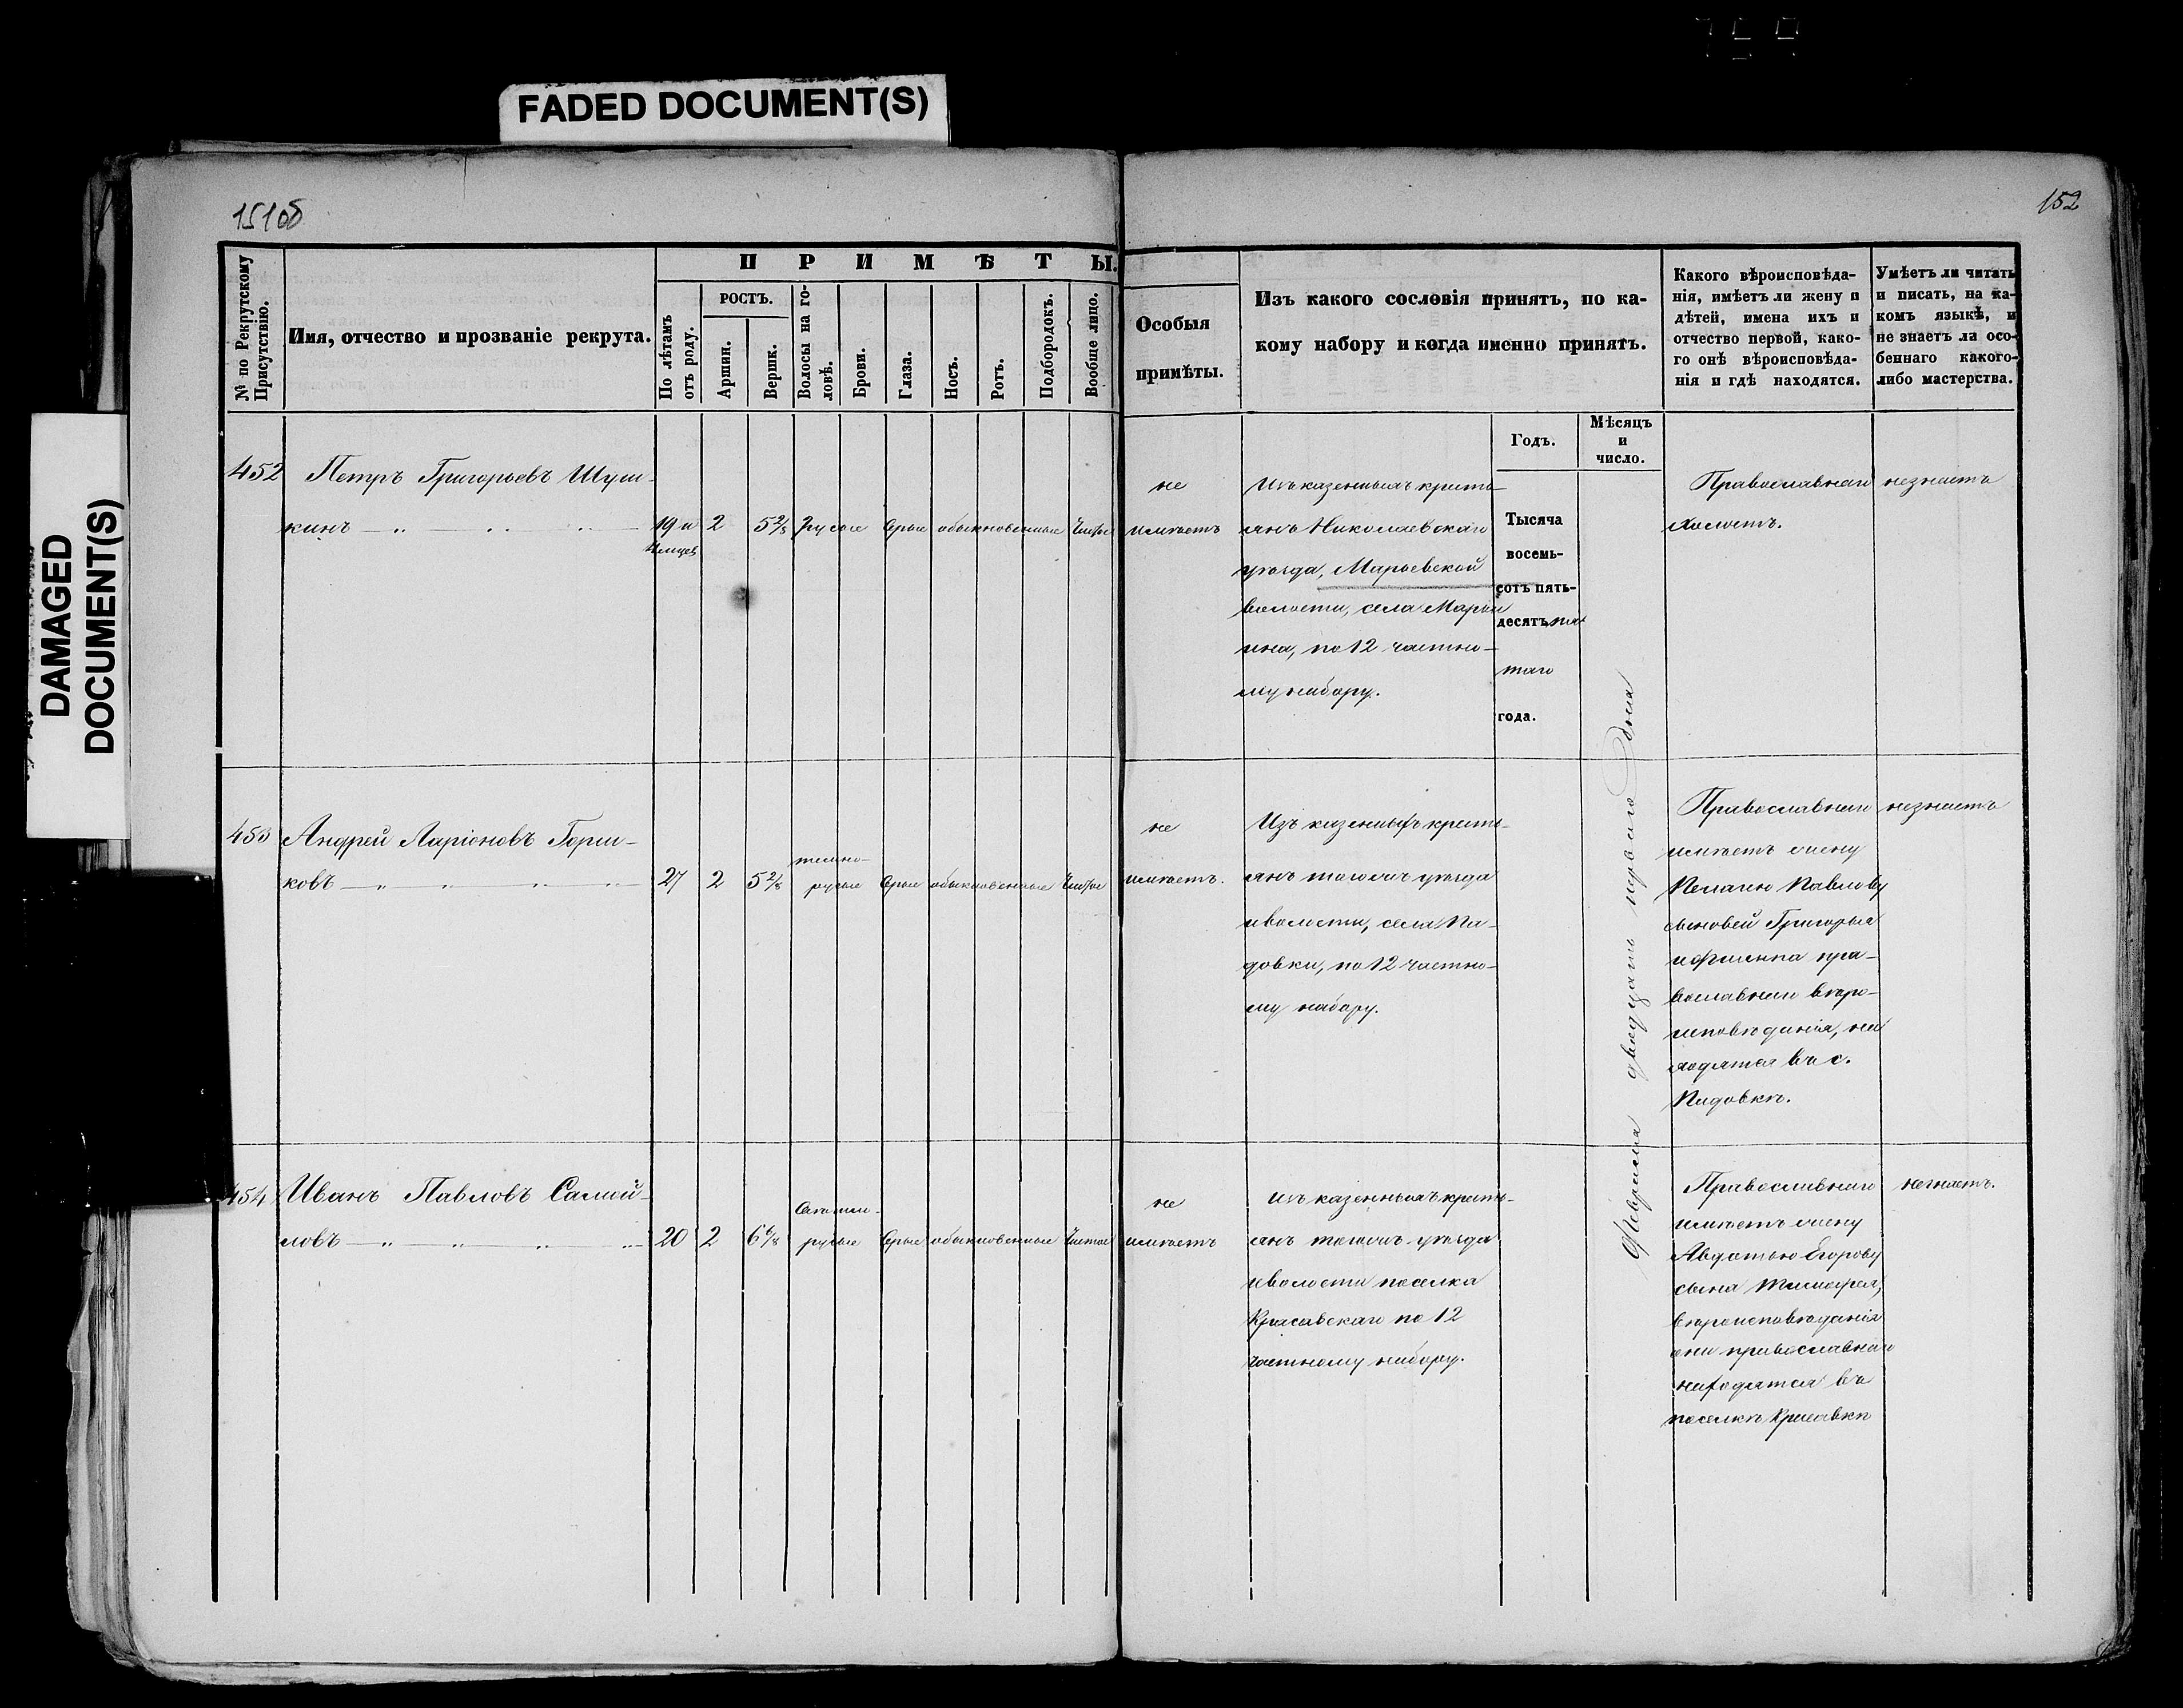 FADED DOCUMENT(S)
DAMAGED
DOCUMENT(S)
151об
152
№ по Рекрутскому
Присутствію.
Имя, отчество и прозваніе рекрута.
ПРИМѢТЫ.
По лѣтамъ
отъ роду.
РОСТЪ.
Аршин.
Вершк.
Волосы на го-
ловѣ.
Брови.
Глаза.
Носъ.
Ротъ.
Подбородокъ.
Вообще лицо.
Особыя
примѣты.
Изъ какого сословія принятъ, по ка-
кому набору и когда именно принятъ.
Годъ.
Мѣсяцъ
и
число.
Какого вѣроисповѣда-
нія, имѣетъ ли жену и
дѣтей, имена ихъ и
отчество первой, како-
го онѣ вѣроисповѣда-
нія и гдѣ находятся.
Умѣетъ ли читать
и писать, на ка-
комъ языкѣ, и
не знаетъ ли осо-
беннаго какого-
либо мастерства.
452
Петръ Григорьевъ Шуш-
кинъ
19 и
2
5 2/8
русые
серые
обыкновенные
Чистое
не
имѣетъ
Изъ казенныхъ кресть-
янъ Николаевскаго
уѣзда, Марьевской
волости, села Марьи
ина, по 12 частно-
му набору.
Тысяча
восемь-
сотъ пять-
десятъ пя-
таго
года.
Февраля двадцать перваго дня
Православнаго
холостъ.
незнаетъ
453
Андрей Ларіоновъ Горш-
ковъ
27
2
5 2/8
темно-
русые
серые
обыкновенные
Чистое
не
имѣетъ.
Изъ казенныхъ кресть-
янъ тогожъ уѣзда
и волости, села Па-
довки, по 12 частно-
му набору.
Православнаго
имѣетъ жену
Пелагею Павлову
сыновей Григорья
пра-
вославнаго вѣро-
исповѣданія, на
ходятся въ с.
Падовкѣ.
незнаетъ
454
Иванъ Павловъ Самой-
ловъ
20
2
6 6/8
русые
серые
обыкновенные
Чистое
не
имѣетъ
Изъ казенныхъ кресть-
янъ тогожъ уѣзда
и волости поселка
Красавскаго по 12
частному набору.
Православнаго
имѣетъ жену
Авдотью Егорову
сына Тимофея,
вѣроисповѣданія
они православнаго
находятся въ
поселкѣ Красавкѣ
незнаетъ.